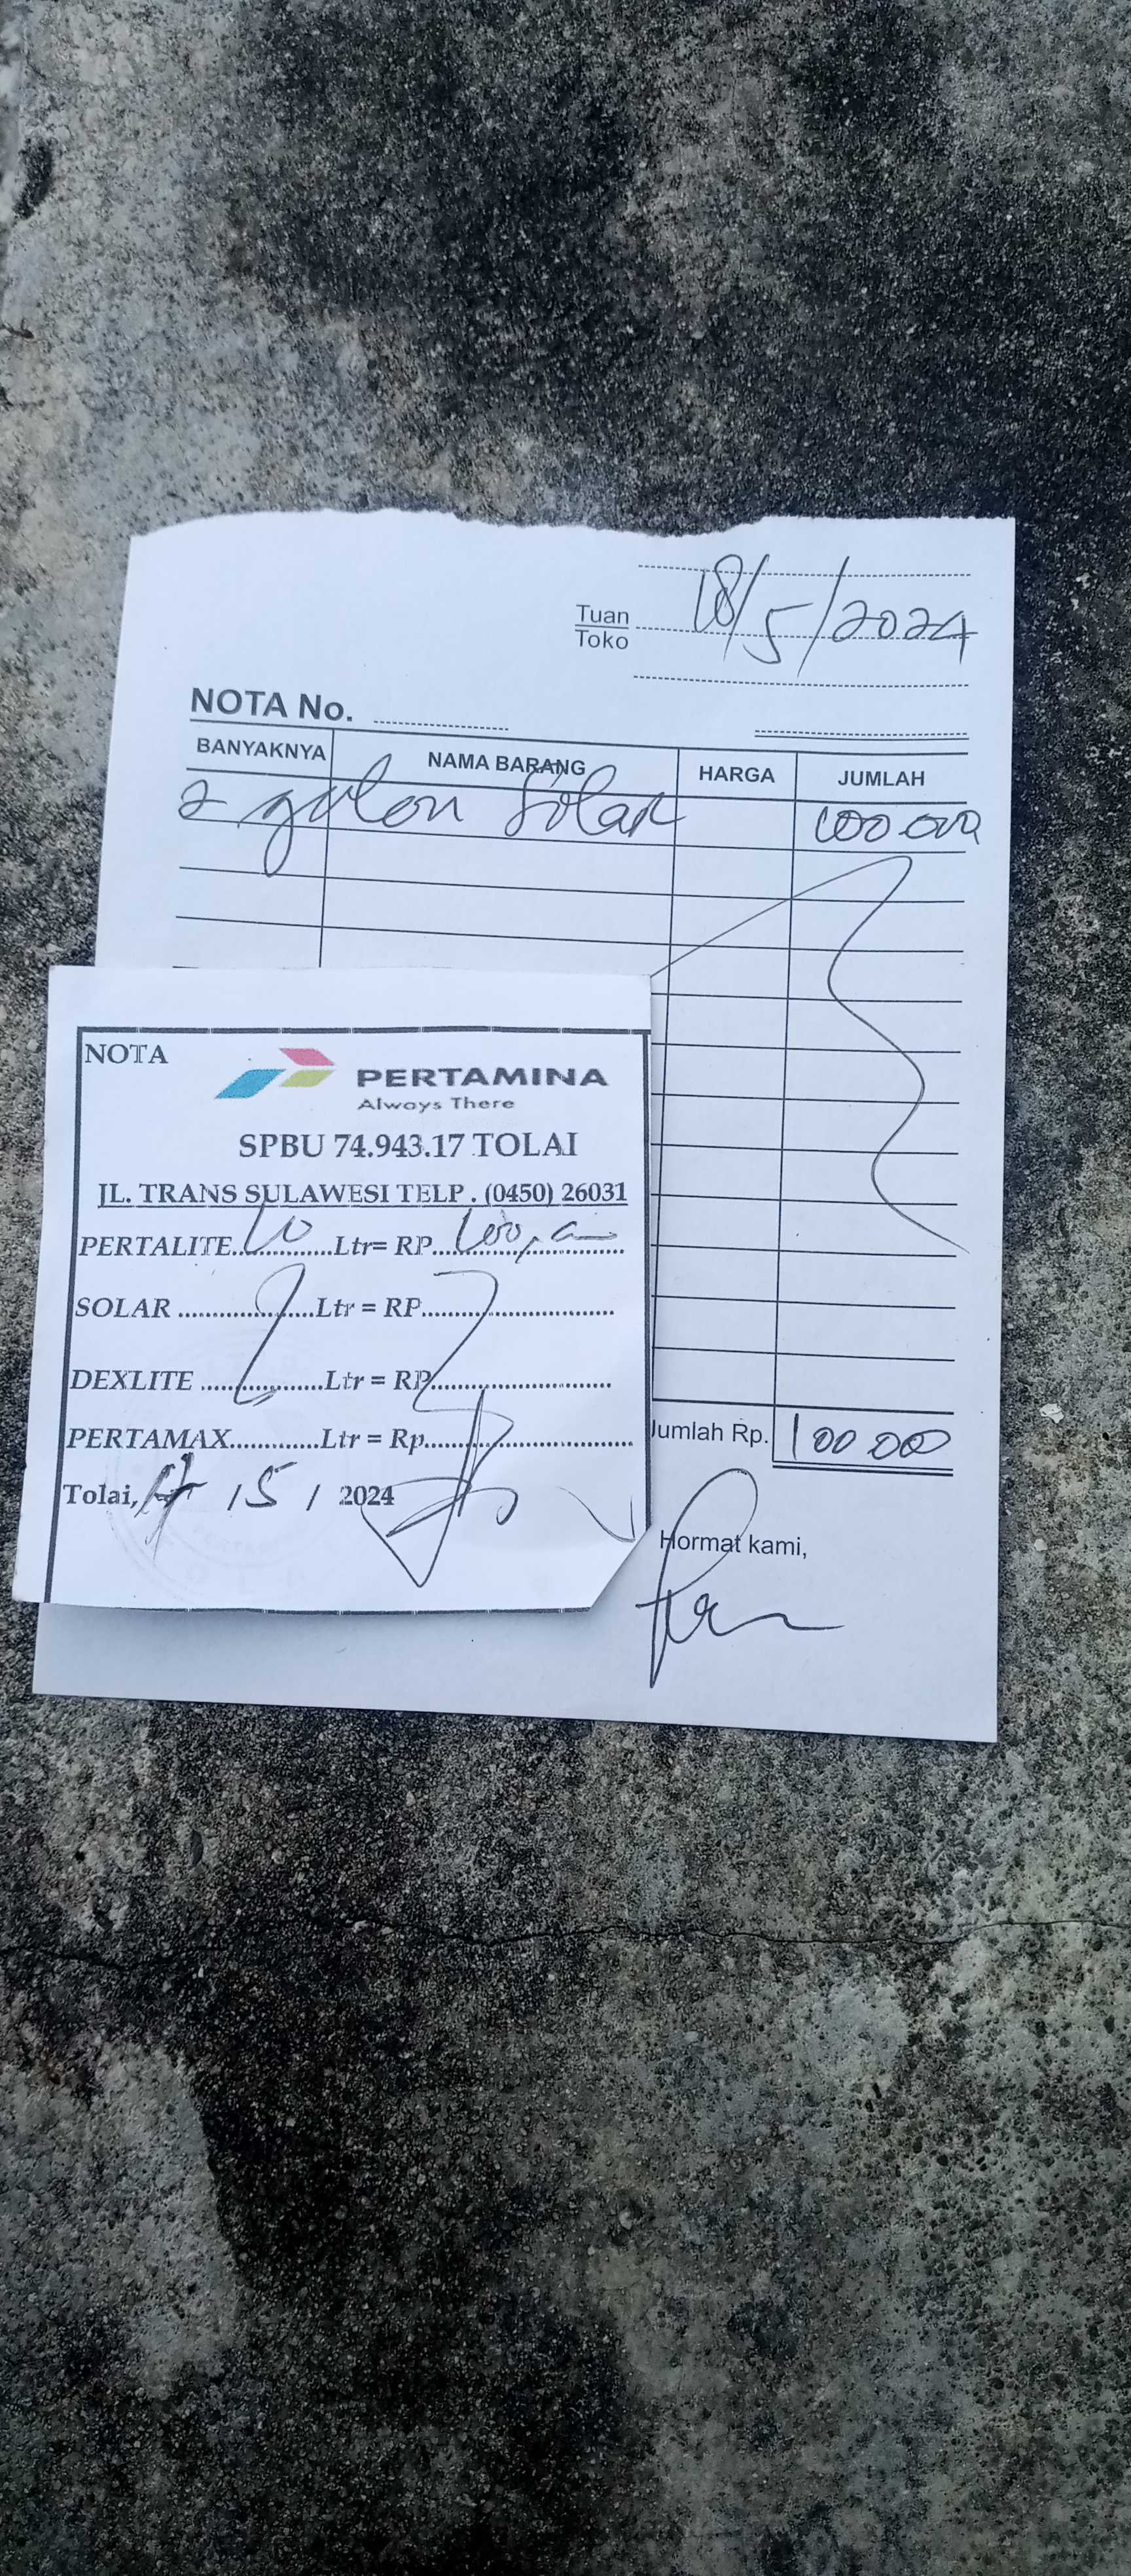 18/5/2024
Tuan
Toko
NOTA No.
BANYAKNYA NAMA BARANG HARGA JUMLAH
2 galon Solar 100 000
Jumlah Rp. 100 000
Hormat kami,
NOTA
PERTAMINA
Always There
SPBU 74.943.17 TOLAI
JL. TRANS SULAWESI TELP . (0450) 26031
PERTALITE..10..Ltr= RP..100,
SOLAR ....................Ltr = RP................................
DEXLITE ....................Ltr = RP..............................
PERTAMAX.............Ltr = Rp..................................
Tolai, /5 / 2024